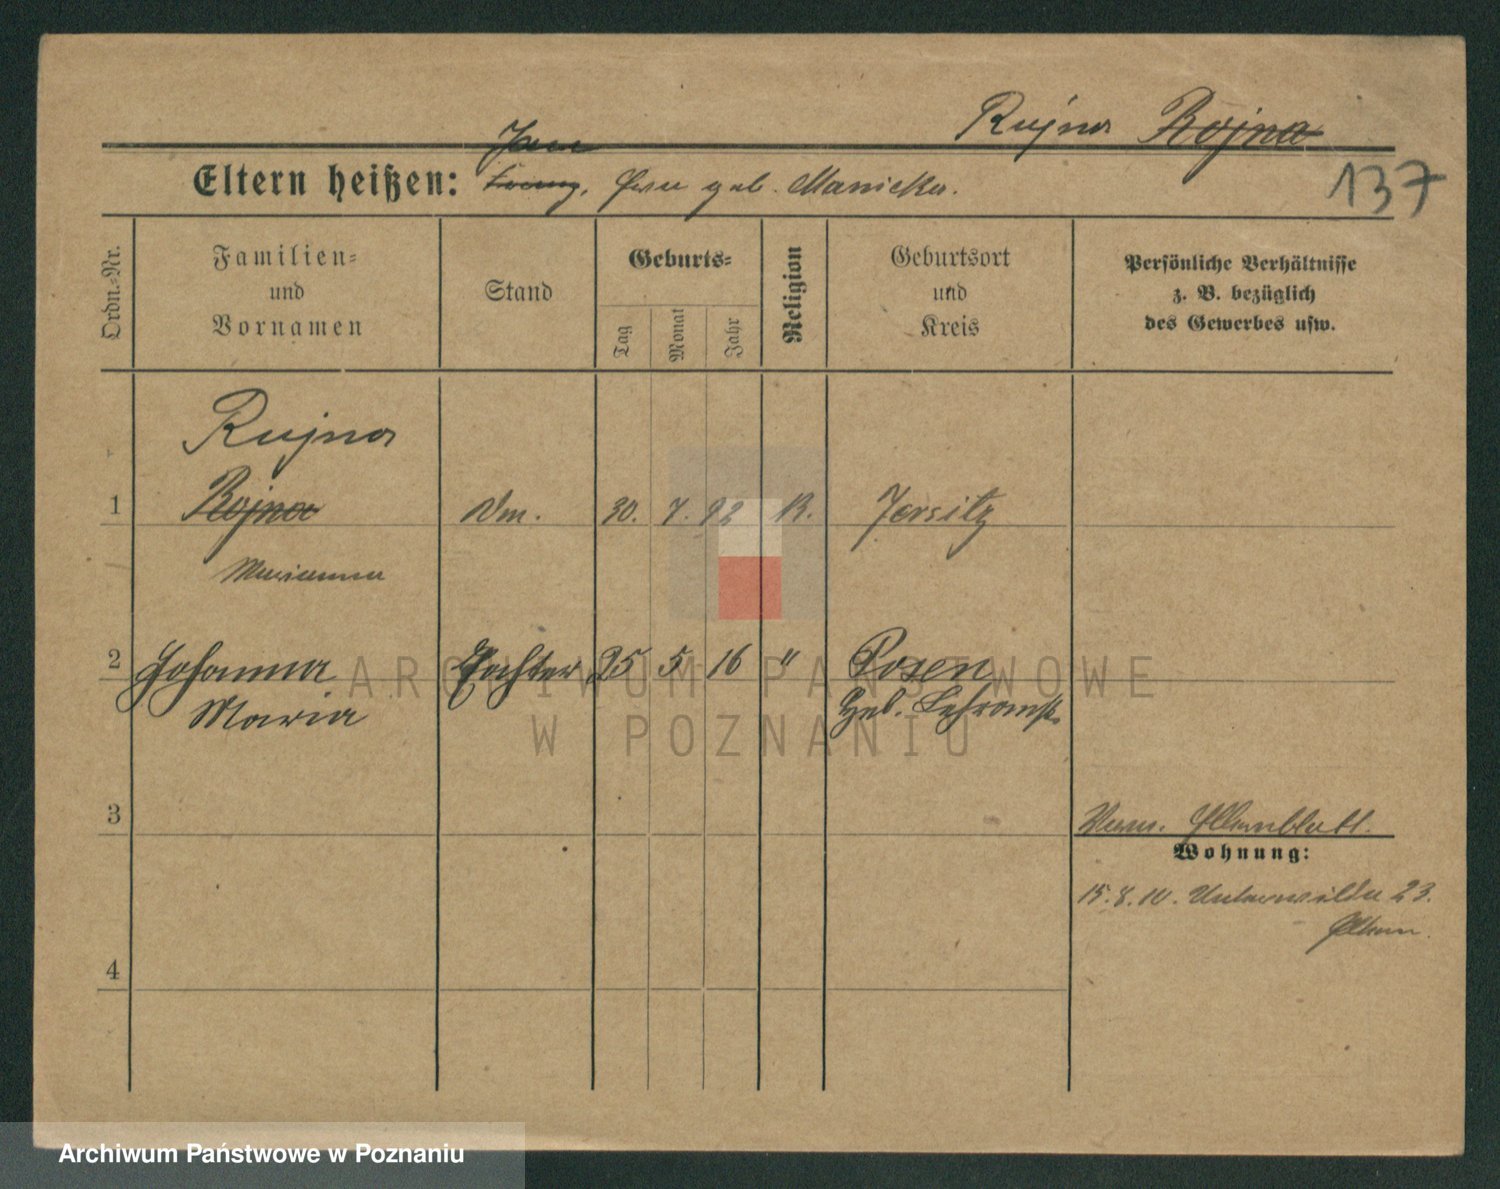 Rujna Rojna
Jan
Eltern heißen: Franz, geb. Manicka.
137
Ordn.-Nr.
Familien-
und
Vornamen
Stand
Geburts-
Tag
Monat
Jahr
Religion
Geburtsort
und
Kreis
Persönliche Verhältnisse
z. B. bezüglich
des Gewerbes usw.
Rujna
1 Rojna 30. 7. 92 K. Jersitz
Marianna
2 Johanna Tochter 25 5 16 " Posen
Maria Heb. Lehranst.
3
Elternblatt.
Wohnung:
15. 8. 10. Unterwilda 23.
Eltern.
4
ARCHIWUM PAŃSTWOWE
W POZNANIU
Archiwum Państwowe w Poznaniu